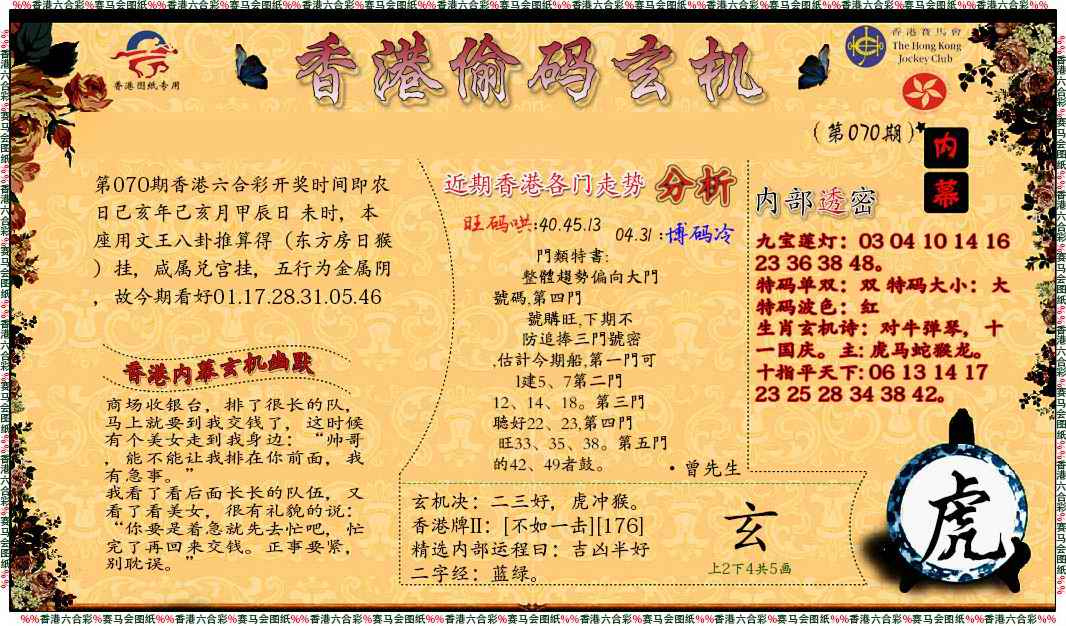 %%香港六合彩%赛马会图纸%%香港六合彩%赛马会图纸%%香港六合彩%赛马会图纸%%香港六合彩%赛马会图纸%%香港六合彩%赛马会图纸%%香港六合彩%赛马会图纸%%香港六合彩%%
香港图纸专用
香港偷码玄机
香港賽馬會
The Hong Kong
Jockey Club
（第070期）
内幕
第070期香港六合彩开奖时间即农
日己亥年己亥月甲辰日 未时，本
座用文王八卦推算得（东方房日猴
）挂，咸属兑宫挂，五行为金属阴
，故今期看好01.17.28.31.05.46
香港内幕玄机幽默
商场收银台，排了很长的队，
马上就要到我交钱了，这时候
有个美女走到我身边：“帅哥
，能不能让我排在你前面，我
有急事。”
我看了看后面长长的队伍，又
看了看美女，很有礼貌的说：
“你要是着急就先去忙吧，忙
完了再回来交钱。正事要紧，
别耽误。”
近期香港各门走势 分析
旺码哄:40.45.13
04.31:博码冷
門類特書:
整體趨勢偏向大門
號碼,第四門
號購旺,下期不
防追捧三門號密
,估計今期船,第一門可
1建5、7第二門
12、14、18。第三門
聽好22、23,第四門
旺33、35、38。第五門
的42、49者鼓。
·曾先生
内部透密
九宝莲灯：03 04 10 14 16
23 36 38 48。
特码单双：双 特码大小：大
特码波色：红
生肖玄机诗：对牛弹琴，十
一国庆。主: 虎马蛇猴龙。
十指平天下: 06 13 14 17
23 25 28 34 38 42。
玄机决：二三好，虎冲猴。
香港牌II：[不如一击][176]
精选内部运程曰：吉凶半好
二字经：蓝绿。
玄
上2下4共5画
虎
%%香港六合彩%赛马会图纸%%香港六合彩%赛马会图纸%%香港六合彩%赛马会图纸%%香港六合彩%赛马会图纸%%香港六合彩%赛马会图纸%%香港六合彩%赛马会图纸%%香港六合彩%%